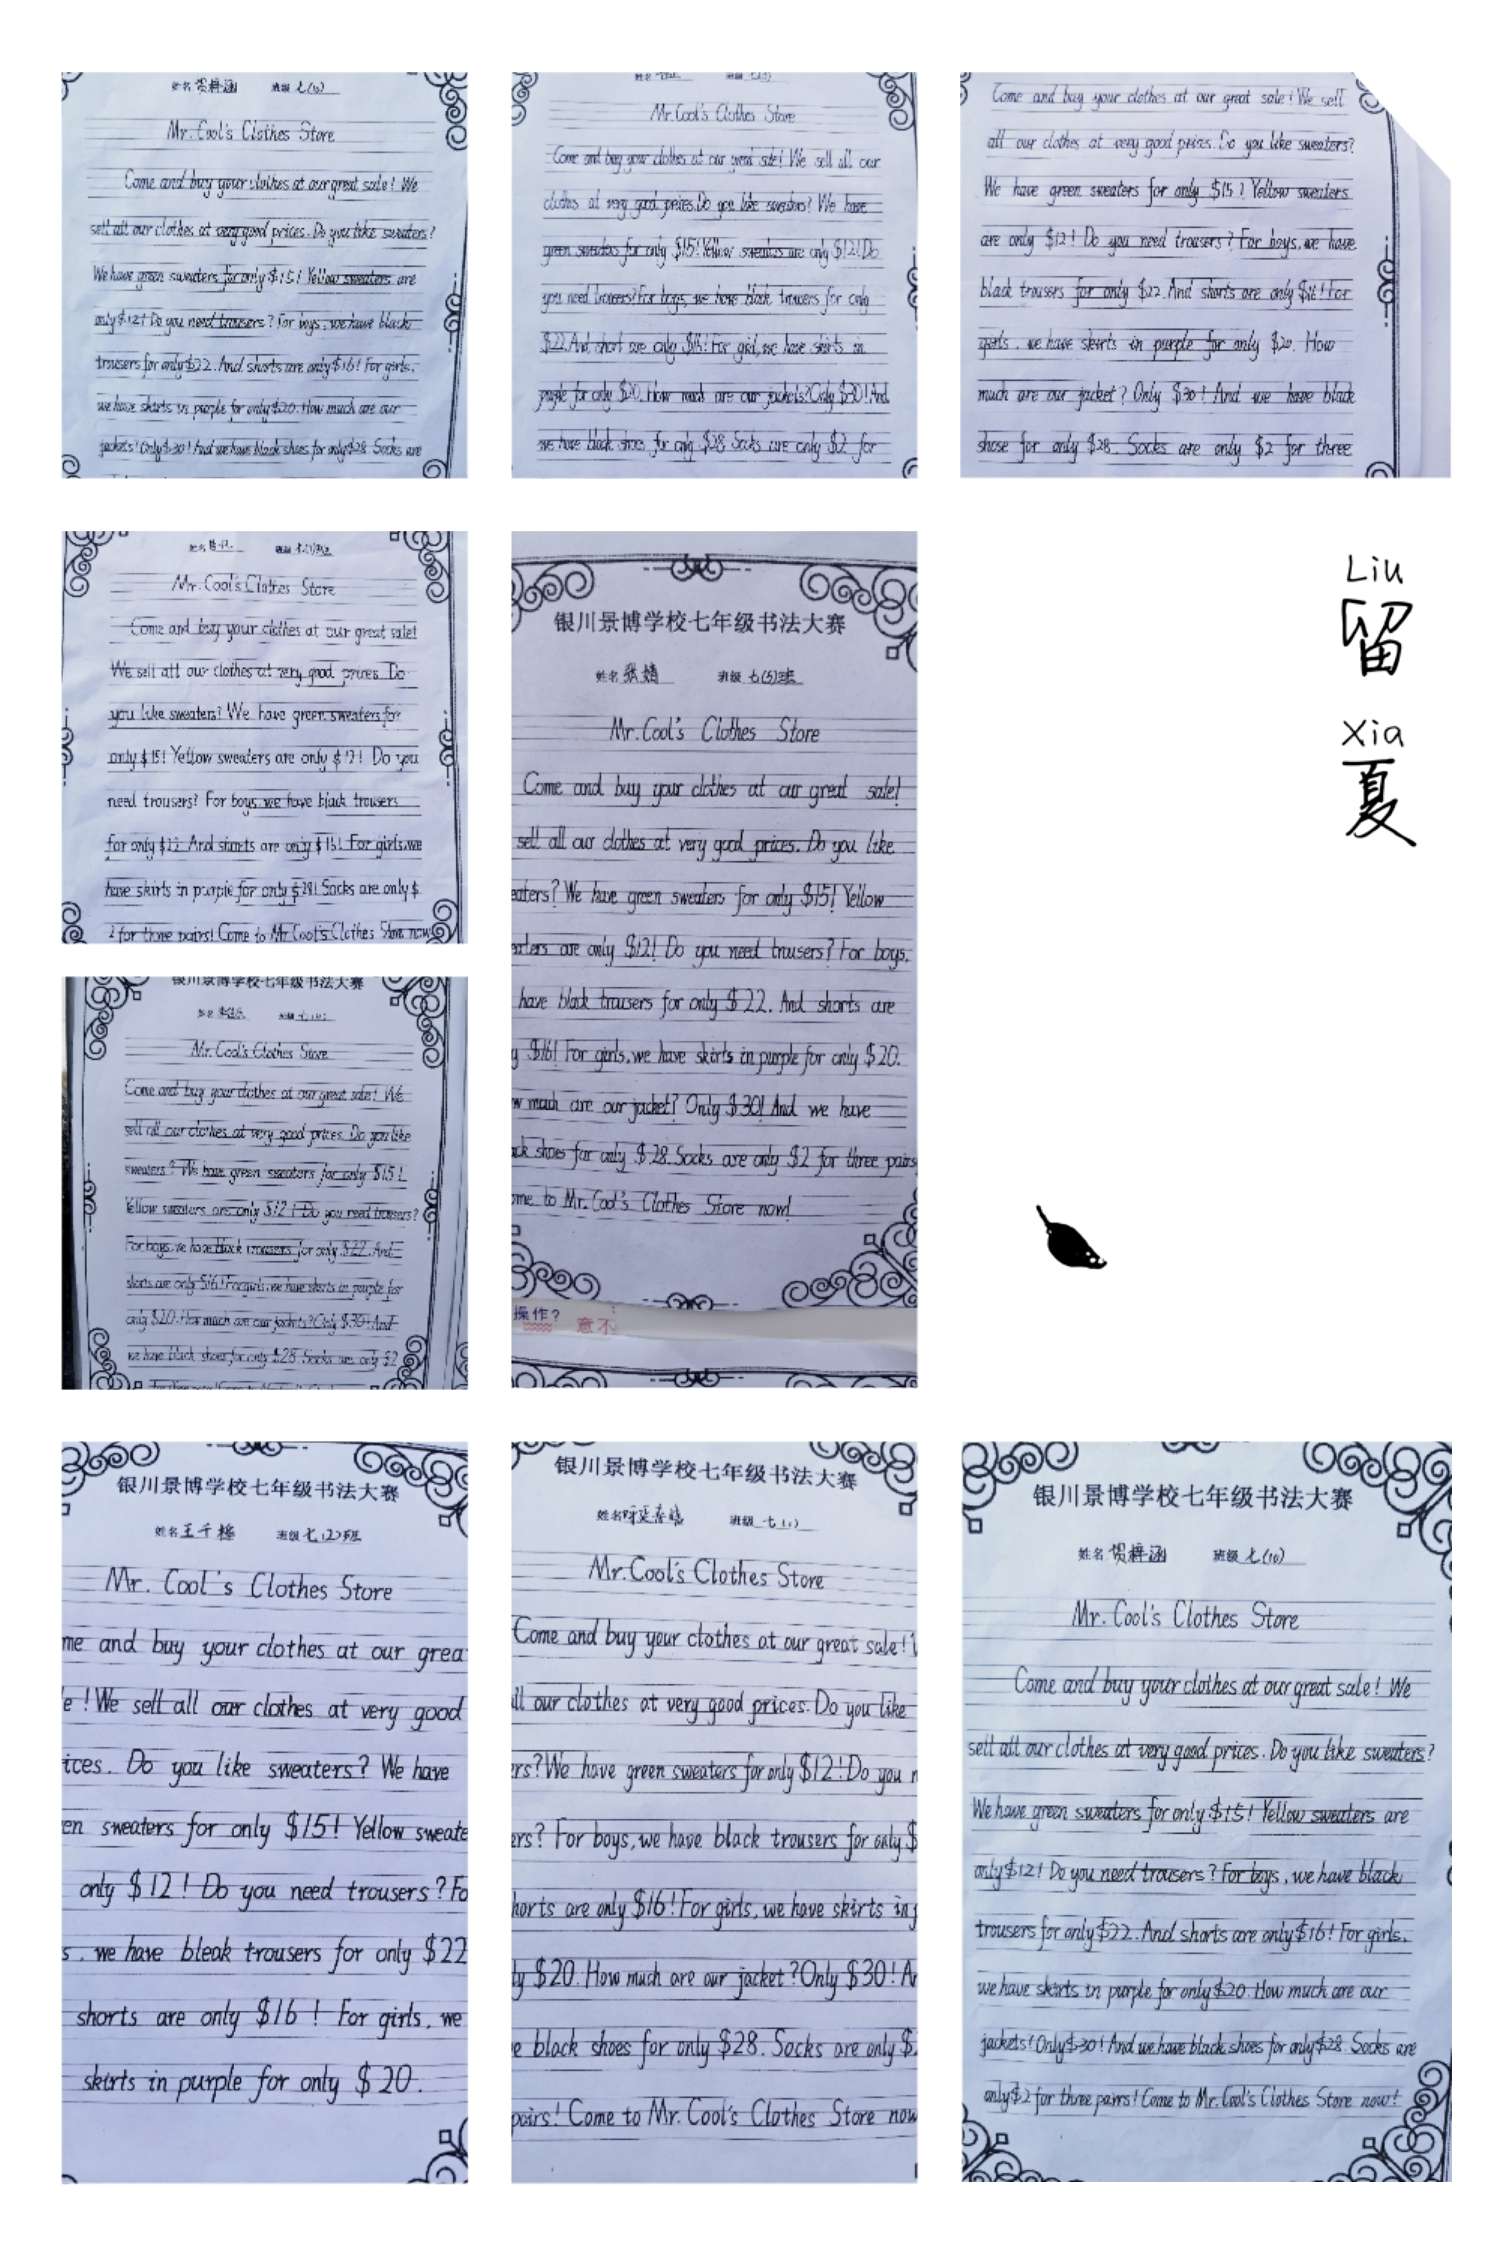 姓名 贺梓涵 班级 七(10)
Mr. Cool's Clothes Store
Come and buy your clothes at our great sale! We
sell all our clothes at very good prices. Do you like sweaters?
We have green sweaters for only $15! Yellow sweaters are
only $12! Do you need trousers? For boys, we have black
trousers for only $22. And shorts are only $16! For girls,
we have skirts in purple for only $20. How much are our
jackets! Only $30! And we have black shoes for only $28. Socks are
Mr. Cool's Clothes Store
Come and buy your clothes at our great sale! We sell all our
clothes at very good prices. Do you like sweaters? We have
green sweaters for only $15! Yellow sweaters are only $12! Do
you need trousers? For boys, we have black trousers for only
$22. And short are only $16! For girl, we have skirts in
purple for only $20. How much are our jackets? Only $30! And
we have black shoes for only $28. Socks are only $2 for
Come and buy your clothes at our great sale! We sell
all our clothes at very good prices. Do you like sweaters?
We have green sweaters for only $15! Yellow sweaters
are only $12! Do you need trousers? For boys, we have
black trousers for only $22. And shorts are only $16! For
girls, we have skirts in purple for only $20. How
much are our jacket? Only $30! And we have black
shose for only $28. Socks are only $2 for three
姓名 班级
Mr. Cool's Clothes Store
Come and buy your clothes at our great sale!
We sell all our clothes at very good prices. Do
you like sweaters? We have green sweaters for
only $15! Yellow sweaters are only $12! Do you
need trousers? For boys we have black trousers
for only $22. And shorts are only $16! For girls, we
have skirts in purple for only $28! Socks are only $
2 for three pairs! Come to Mr. Cool's Clothes Store now
银川景博学校七年级书法大赛
姓名 张婧 班级 七(5)班
Mr. Cool's Clothes Store
Come and buy your clothes at our great sale!
sell all our clothes at very good prices. Do you like
eaters? We have green sweaters for only $15! Yellow
eaters are only $12! Do you need trousers? For boys,
have black trousers for only $22. And shorts are
y $16! For girls, we have skirts in purple for only $20.
w much are our jacket? Only $30! And we have
ack shoes for only $28. Socks are only $2 for three pairs
ome to Mr. Cool's Clothes Store now!
操作? 意不
Liu
留
Xia
夏
银川景博学校七年级书法大赛
姓名 班级
Mr. Cool's Clothes Store
Come and buy your clothes at our great sale! We
sell all our clothes at very good prices. Do you like
sweaters? We have green sweaters for only $15!
Yellow sweaters are only $12! Do you need trousers?
For boys, we have black trousers for only $22. And
shorts are only $16! For girls, we have skirts in purple for
only $20. How much are our jackets? Only $30! And
we have black shoes for only $28. Socks are only $2
银川景博学校七年级书法大赛
姓名 王千 班级 七(2)班
Mr. Cool's Clothes Store
me and buy your clothes at our grea
e! We sell all our clothes at very good
ices. Do you like sweaters? We have
en sweaters for only $15! Yellow sweate
only $12! Do you need trousers? Fo
s, we have bleak trousers for only $22
shorts are only $16! For girls, we
skirts in purple for only $20.
银川景博学校七年级书法大赛
姓名 班级 七(1)
Mr. Cool's Clothes Store
Come and buy your clothes at our great sale!
ll our clothes at very good prices. Do you like
rs? We have green sweaters for only $12! Do you
ers? For boys, we have black trousers for only $
horts are only $16! For girls, we have skirts in
ly $20. How much are our jacket? Only $30! A
e black shoes for only $28. Socks are only $
pairs! Come to Mr. Cool's Clothes Store now
银川景博学校七年级书法大赛
姓名 贺梓涵 班级 七(10)
Mr. Cool's Clothes Store
Come and buy your clothes at our great sale! We
sell all our clothes at very good prices. Do you like sweaters?
We have green sweaters for only $15! Yellow sweaters are
only $12! Do you need trousers? For boys, we have black
trousers for only $22. And shorts are only $16! For girls,
we have skirts in purple for only $20. How much are our
jackets! Only $30! And we have black shoes for only $28. Socks are
only $2 for three pairs! Come to Mr. Cool's Clothes Store now!